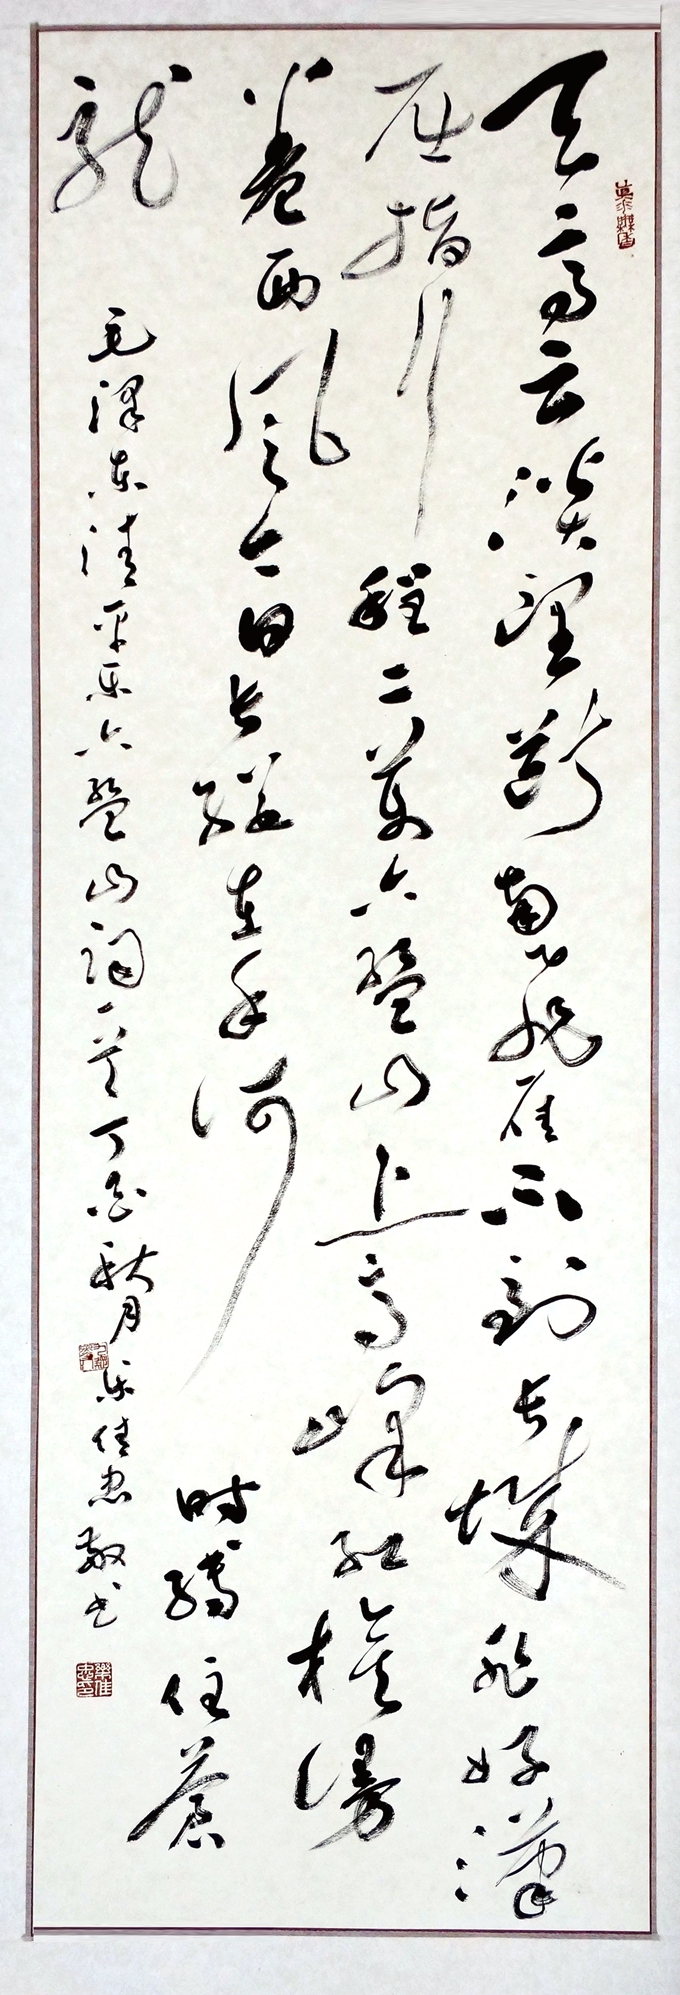 天高云淡望断南飞雁不到长城非好漢
屈指行程二萬六盘山上高峰红旗漫
卷西风今日长缨在手何时缚住苍
龙
毛泽东清平乐六盘山词一首丁酉秋月栾佳忠敬书